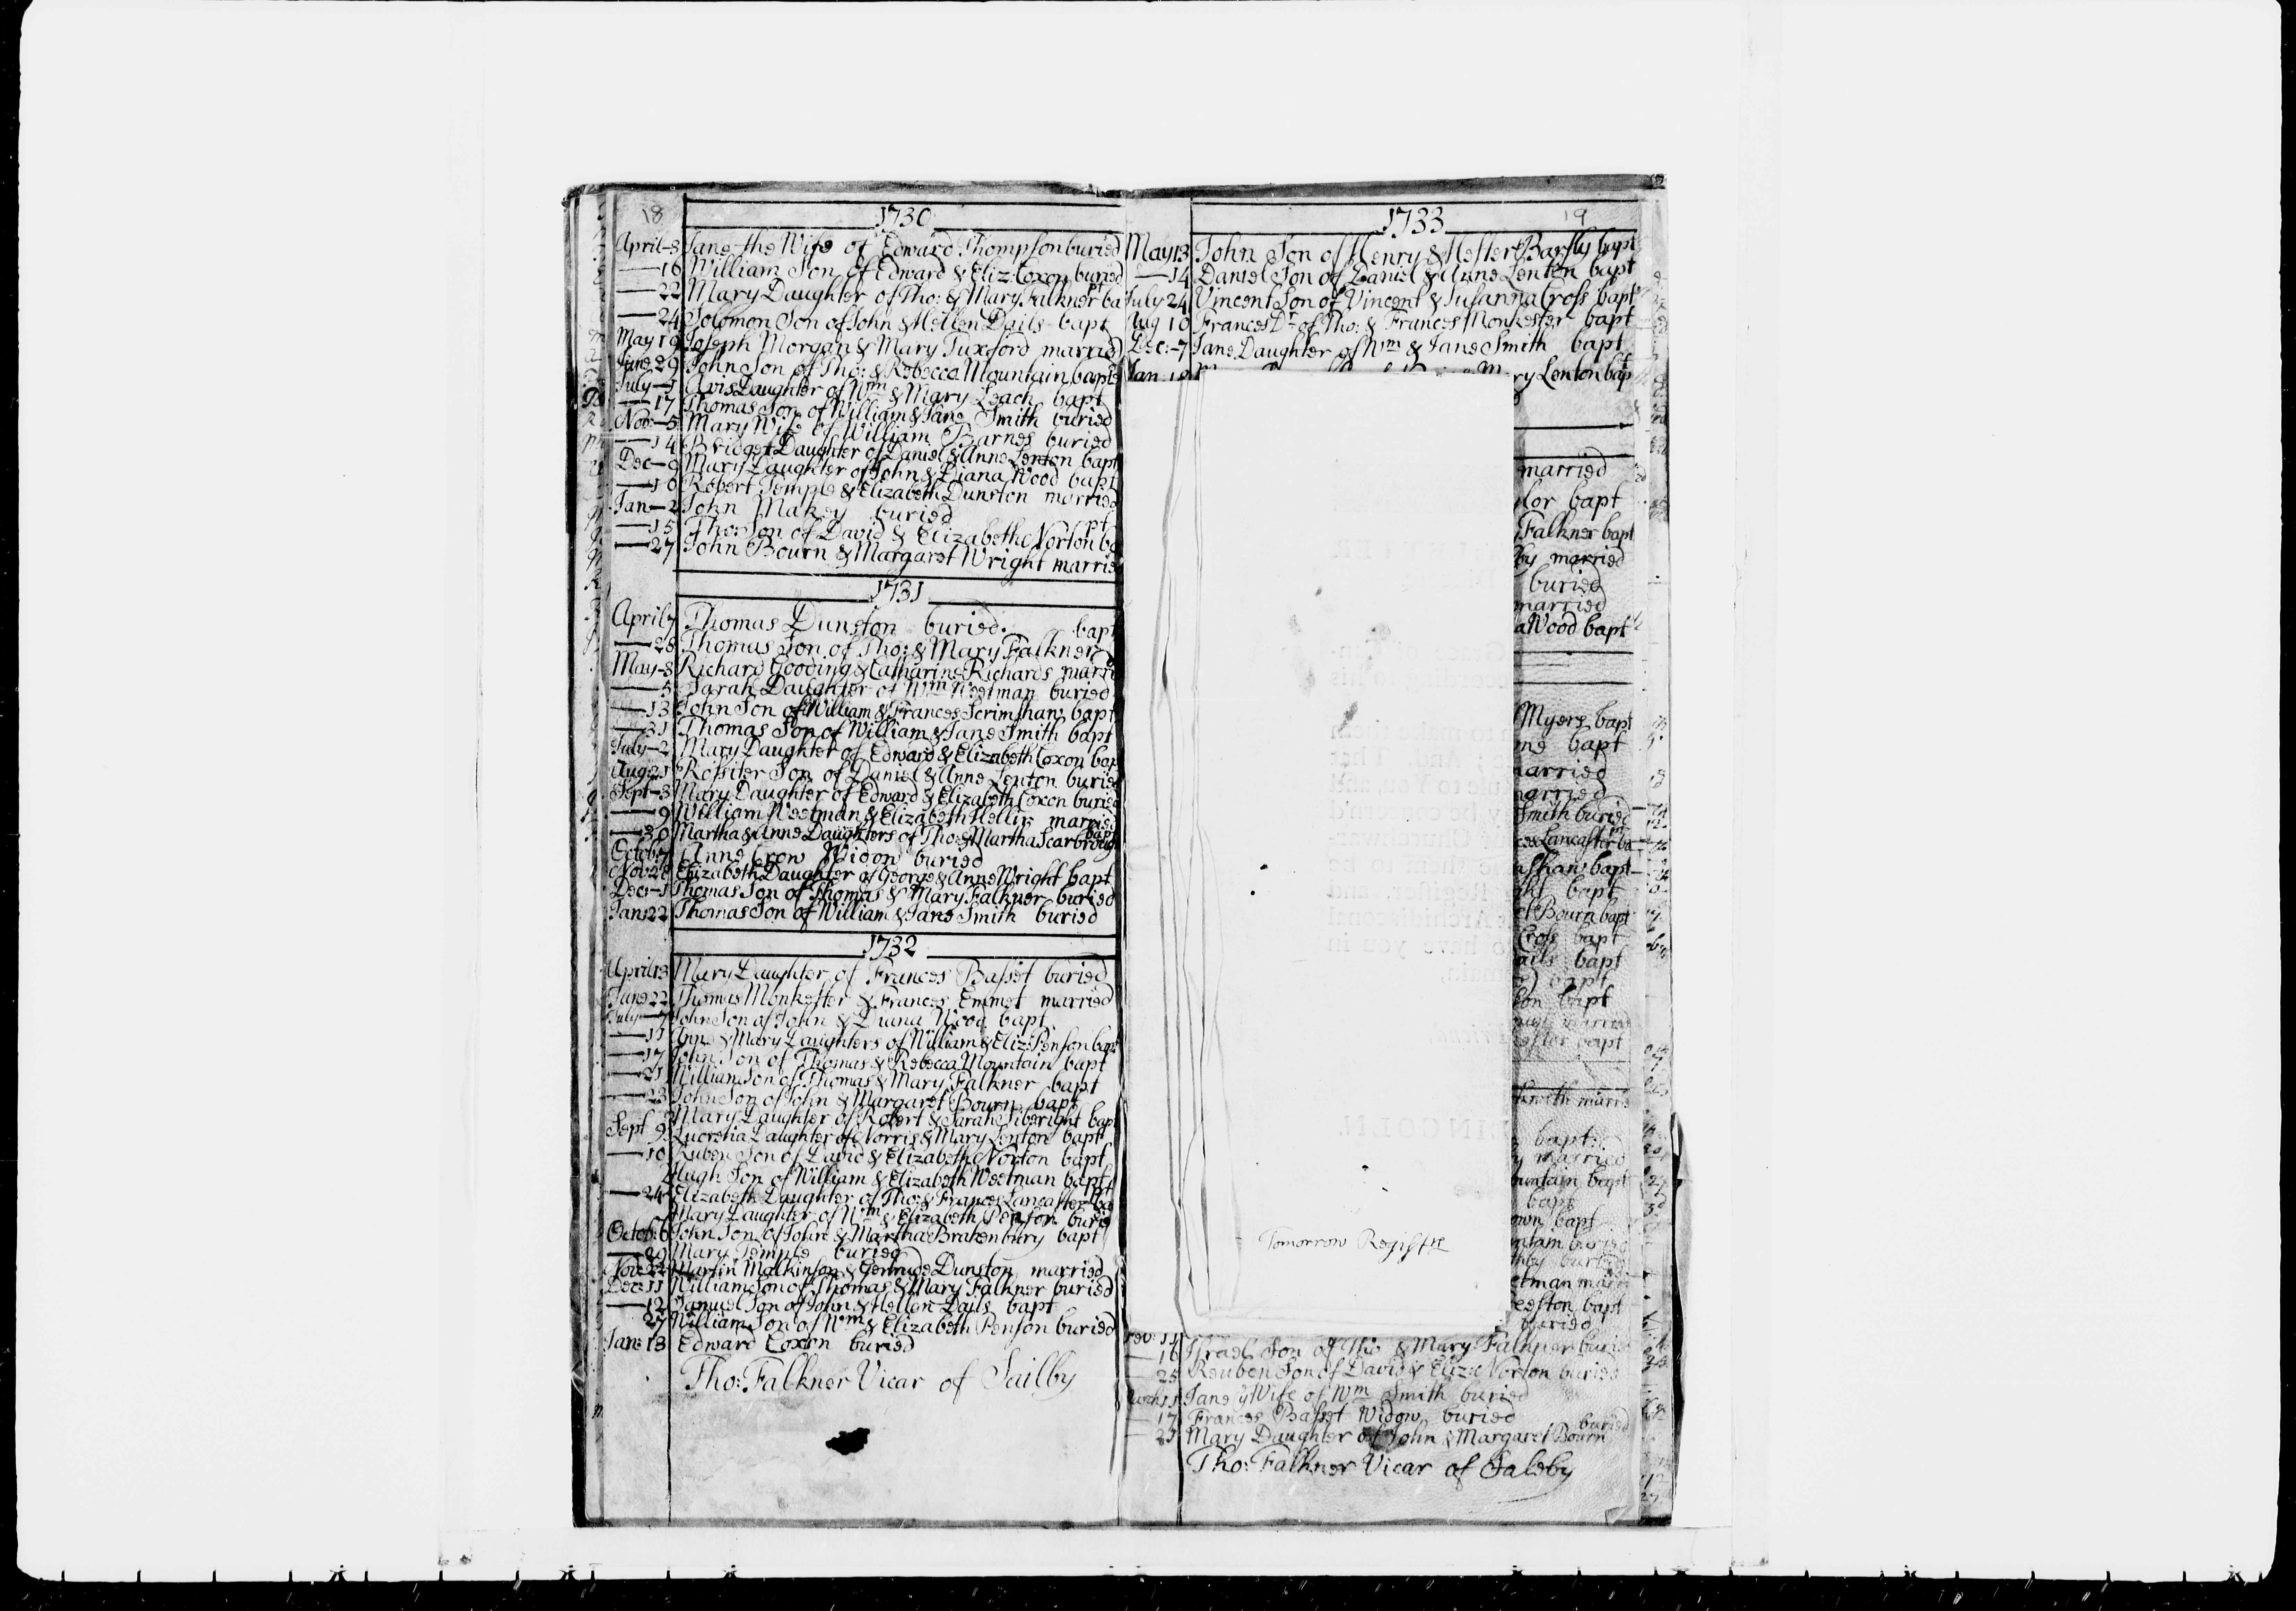 18
1730
April-8 Jane the Wife of Edward Thompson buried
16 William Son of Edward & Eliz: Coxon buried
22 Mary Daughter of Tho: & Mary Falkner bapt
24 Solomon Son of John & Hellen Dails bapt
May 19 Joseph Morgan & Mary Tuxford married
June 29 John Son of Tho: & Rebecca Mountain bapt
July-1 Avis Daughter of Wm & Mary Leach bapt
17 Thomas Son of William & Jane Smith buried
Nov:-5 Mary Wife of William Barnes buried
14 Bridget Daughter of Daniel & Anne Lenton bapt
Dec-9 Mary Daughter of John & Diana Wood bapt
10 Robert Temple & Elizabeth Dunston married
Jan-2 John Makey buried
15 Tho: Son of David & Elizabethe Norton bapt
27 John Bourn & Margaret Wright married
1731
April 7 Thomas Dunston buried
28 Thomas Son of Tho: & Mary Falkner bapt
May-8 Richard Gooding & Catharine Richards marri
5 Sarah Daughter of Wm Weetman buried
13 John Son of William & Frances Scrimshaw bapt
31 Thomas Son of William & Jane Smith bapt
July-2 Mary Daughter of Edward & Elizabeth Coxon bap
Aug: 21 Rossiter Son of Daniel & Anne Lenton buried
Sept-3 Mary Daughter of Edward & Elizabeth Coxon buried
9 William Weetman & Elizabeth Hellis married
30 Martha & Anne Daughters of Tho: & Martha Scarbrough bapt
October Anne Crow Widow buried
Nov: 28 Elizabeth Daughter of George & Anne Wright bapt
Dec:-1 Thomas Son of Thomas & Mary Falkner buried
Jan: 22 Thomas Son of William & Jane Smith buried
1732
April 13 Mary Daughter of Frances Basset buried
June 22 Thomas Monkester & Frances Emmet married
July-7 John Son of John & Diana Wood bapt
11 Anne & Mary Daughters of William & Eliz: Penson bapt
17 John Son of Thomas & Rebecca Mountain bapt
21 William Son of Thomas & Mary Falkner bapt
23 John Son of John & Margaret Bourn bapt
Mary Daughter of Robert & Sarah Siberight bapt
Sept 9 Lucretia Daughter of Norris & Mary Lenton bapt
10 Ruben Son of David & Elizabeth Norton bapt
Hugh Son of William & Elizabeth Weetman bapt
24 Elizabeth Daughter of Tho: & Frances Lancaster bapt
Mary Daughter of Wm & Elizabeth Penson buried
Octob: 6 John Son of John & Martha Brakenbury bapt
29 Mary Temple buried
Nov: 22 Martin Malkinson & Gertrude Dunston married
Dec: 11 William Son of Thomas & Mary Falkner buried
12 Samuel Son of John & Hellen Dails bapt
27 William Son of Wm & Elizabeth Penson buried
Jan: 13 Edward Coxon buried
Tho: Falkner Vicar of Sailby
19
1733
May 13 John Son of Henry & Hester Barsly bapt
14 Daniel Son of Daniel & Anne Lenton bapt
July 24 Vincent Son of Vincent & Susanna Cross bapt
Aug 10 Frances Dr of Tho: & Frances Monkester bapt
Dec:-7 Jane Daughter of Wm & Jane Smith bapt
Jan ry Lenton bapt
married
lor bapt
Falkner bapt
by married
buried
married
a Wood bapt
Myers bapt
ne bapt
married
married
Smith buried
Lancaster ba
shaw bapt
bapt
Bourn bapt
Cross bapt
ails bapt
bapt
bapt
bapt
married
untain bapt
bapt
own bapt
bapt
buried
Tomorrow Registr
Feb: 11 Israel Son of Tho & Mary Falkner buried
16
25 Reuben Son of David & Eliz: Norton buried
11 Jane ye Wife of Wm Smith buried
17 Frances Basset Widow buried
21 Mary Daughter of John & Margaret Bourn buried
Tho: Falkner Vicar of Saleby